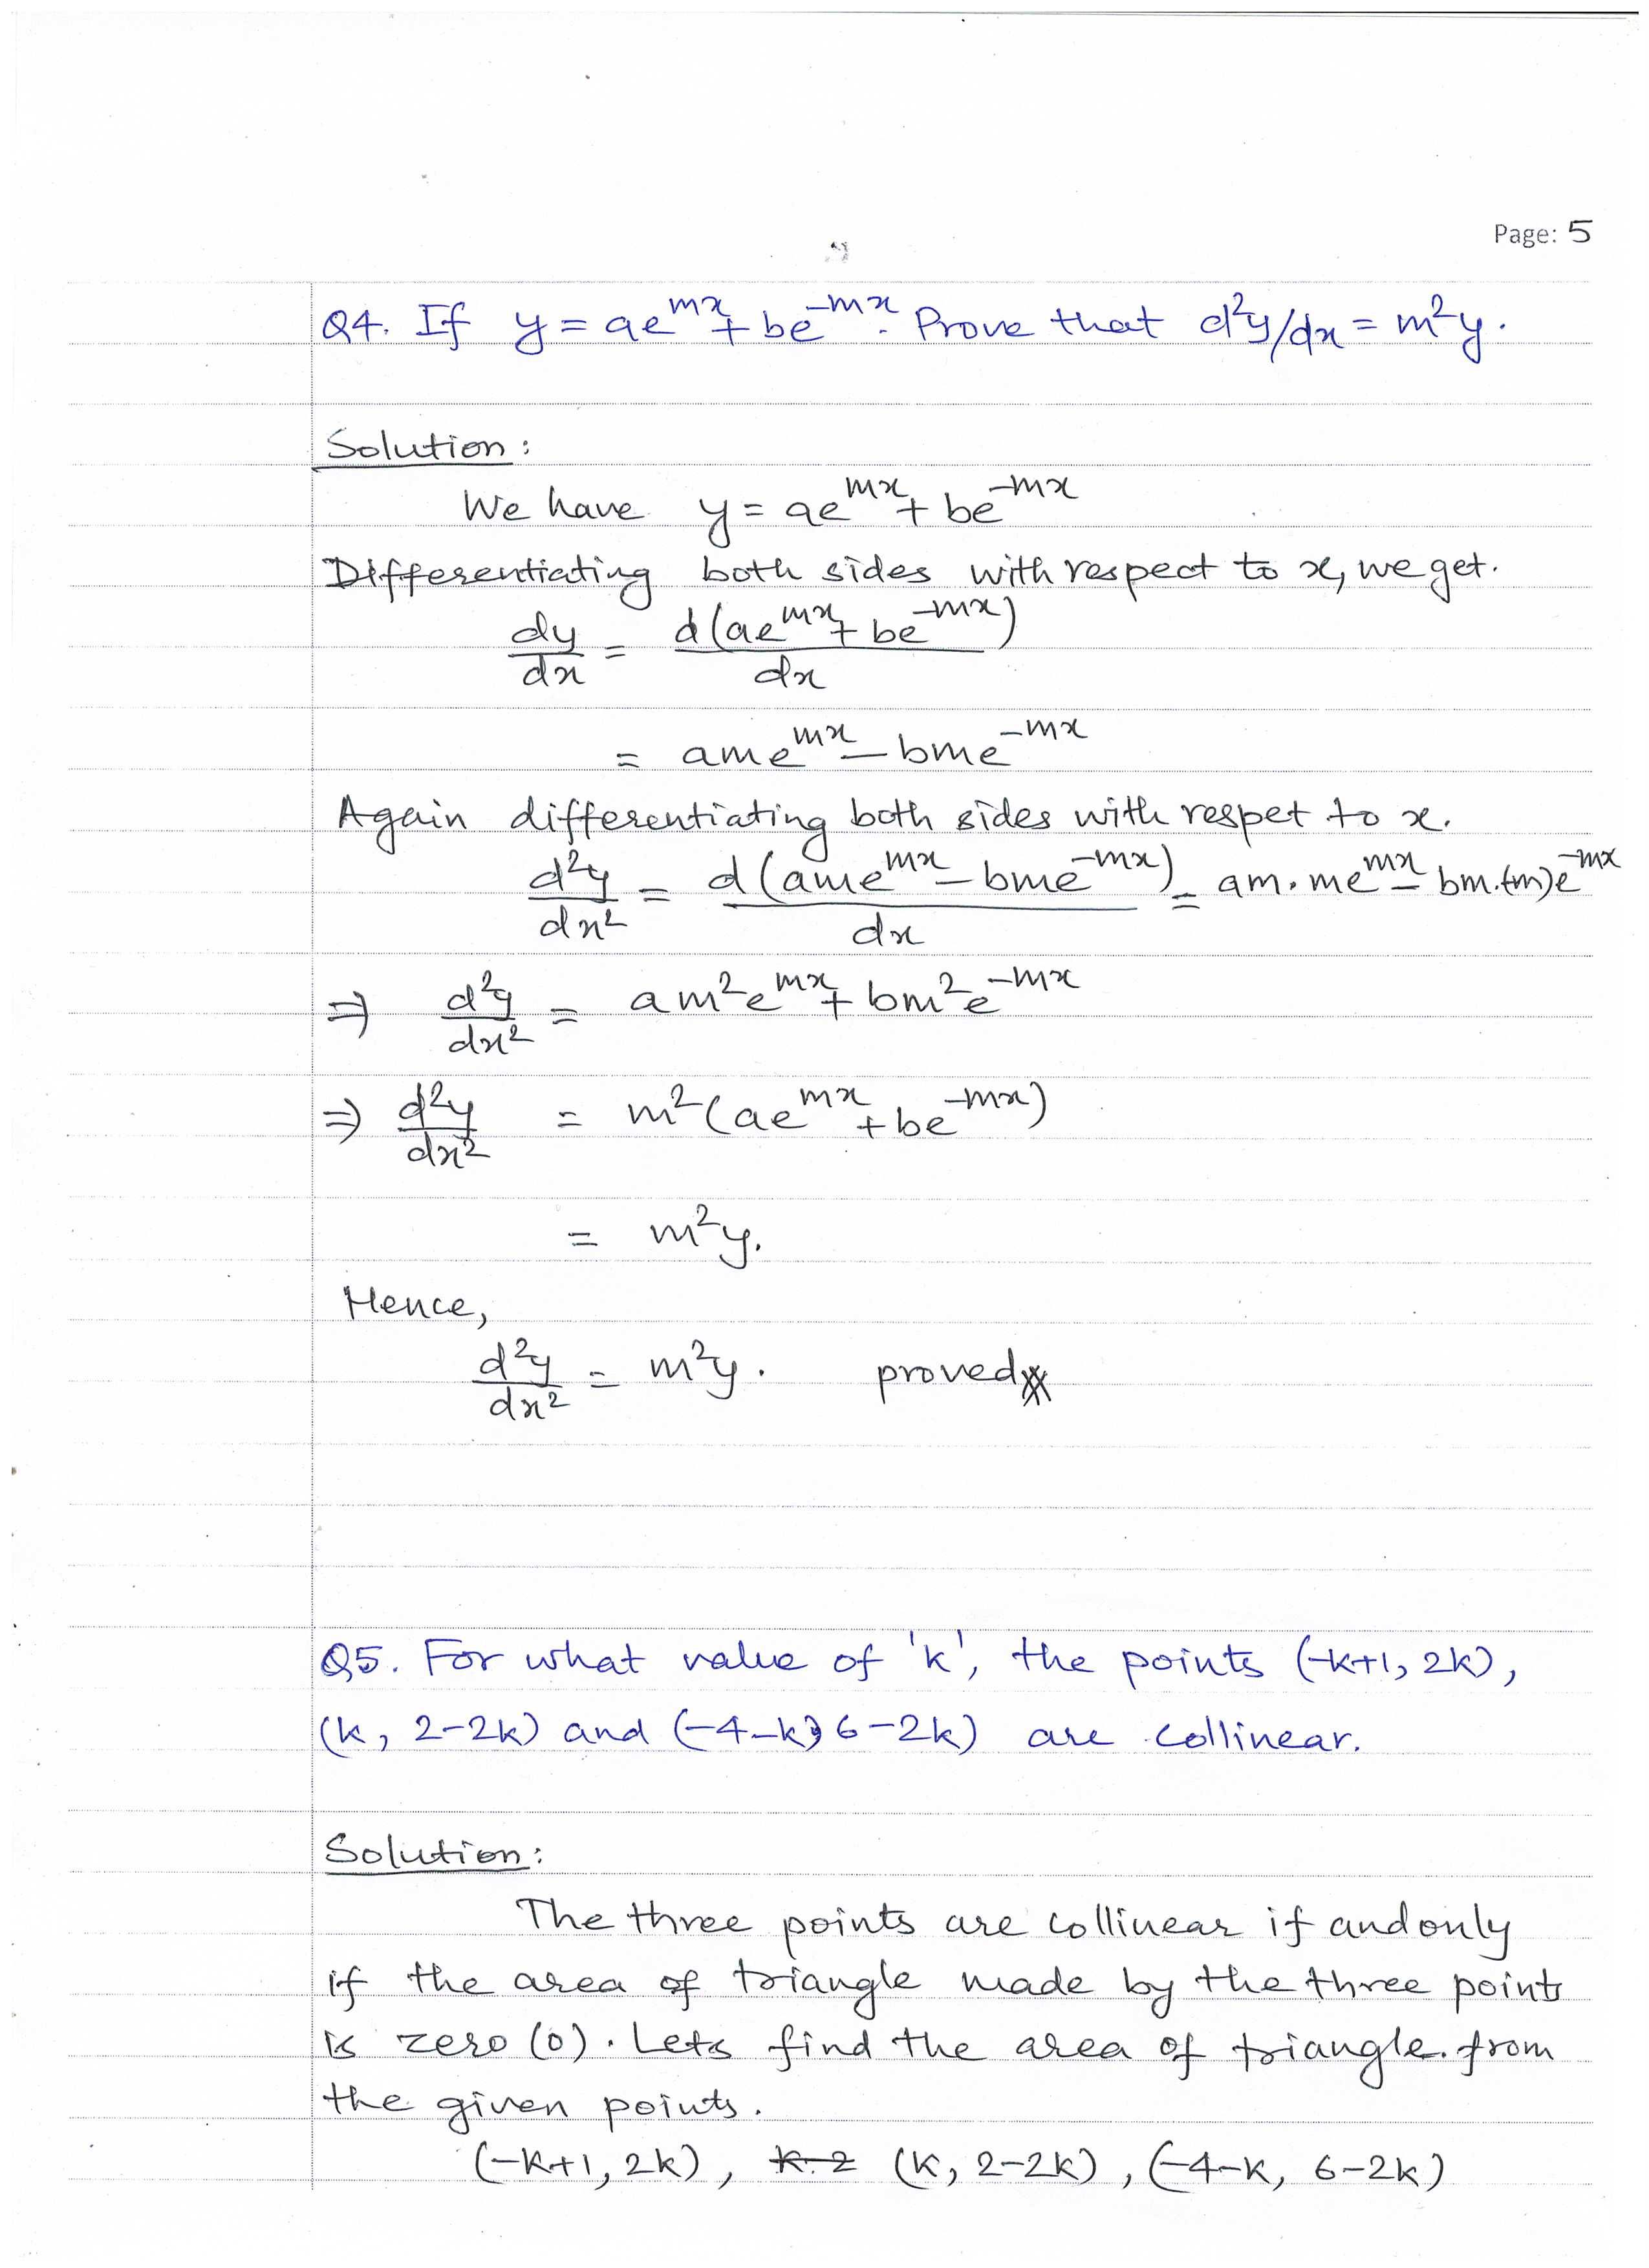 Page: 5
Q4. If y = ae^{mx} + be^{-mx}. Prove that d²y/dx = m²y.
Solution:
We have y = ae^{mx} + be^{-mx}
Differentiating both sides with respect to x, we get.
dy/dx = d(ae^{mx} + be^{-mx})/dx
= ame^{mx} - bme^{-mx}
Again differentiating both sides with respet to x.
d²y/dx² = d(ame^{mx} - bme^{-mx})/dx = am.me^{mx} - bm.(-m)e^{-mx}
⇒ d²y/dx² = am²e^{mx} + bm²e^{-mx}
⇒ d²y/dx² = m²(ae^{mx} + be^{-mx})
= m²y.
Hence,
d²y/dx² = m²y. proved
Q5. For what value of 'k', the points (-k+1, 2k),
(k, 2-2k) and (-4-k, 6-2k) are collinear.
Solution:
The three points are collinear if and only
if the area of triangle made by the three points
is zero (0). Lets find the area of triangle. from
the given points.
(-k+1, 2k), k.2 (k, 2-2k), (-4-k, 6-2k)